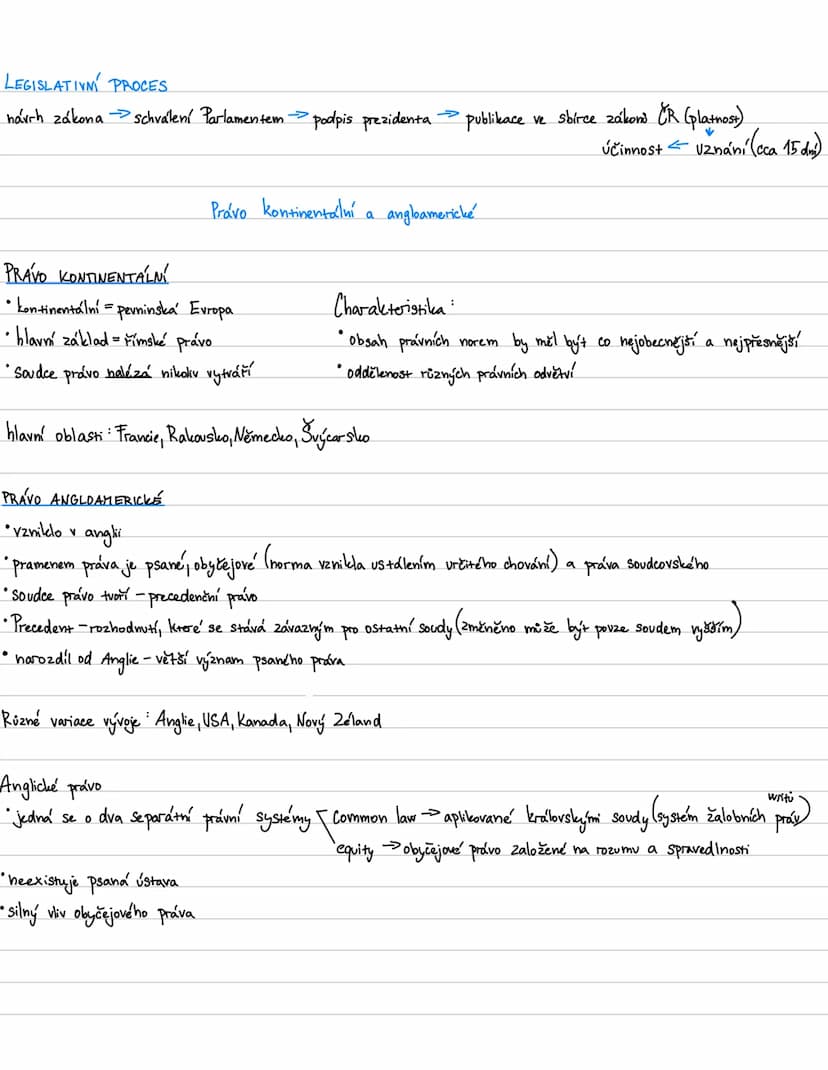 LEGISLATIVNÍ PROCES
návrh zákona → schválení Parlamentem → podpis prezidenta → publikace ve sbírce zákonů ČR (platnost)
účinnost ← uznání (cca 15 dní)
Právo kontinentální a angloamerické
PRÁVO KONTINENTÁLNÍ
• kontinentální = pevninská Evropa
• hlavní základ = římské právo
• Soudce právo nalézá nikoliv vytváří
Charakteristika:
• obsah právních norem by měl být co nejobecnější a nejpřesnější
• oddělenost různých právních odvětví
hlavní oblasti: Francie, Rakousko, Německo, Švýcarsko
PRÁVO ANGLOAMERICKÉ
• vzniklo v anglii
• pramenem práva je psané, obyčejové (norma vznikla ustálením určitého chování) a práva soudcovského
• Soudce právo tvoří – precedenční právo
• Precedent – rozhodnutí, které se stává závazným pro ostatní soudy (změněno může být pouze soudem vyšším)
• narozdíl od Anglie – větší význam psaného práva
Různé variace vývoje: Anglie, USA, Kanada, Nový Zéland
Anglické právo
• jedná se o dva separátní právní systémy
Common law → aplikované královskými soudy (systém žalobních práv)
writů
equity → obyčejové právo založené na rozumu a spravedlnosti
• neexistuje psaná ústava
• silný vliv obyčejového práva